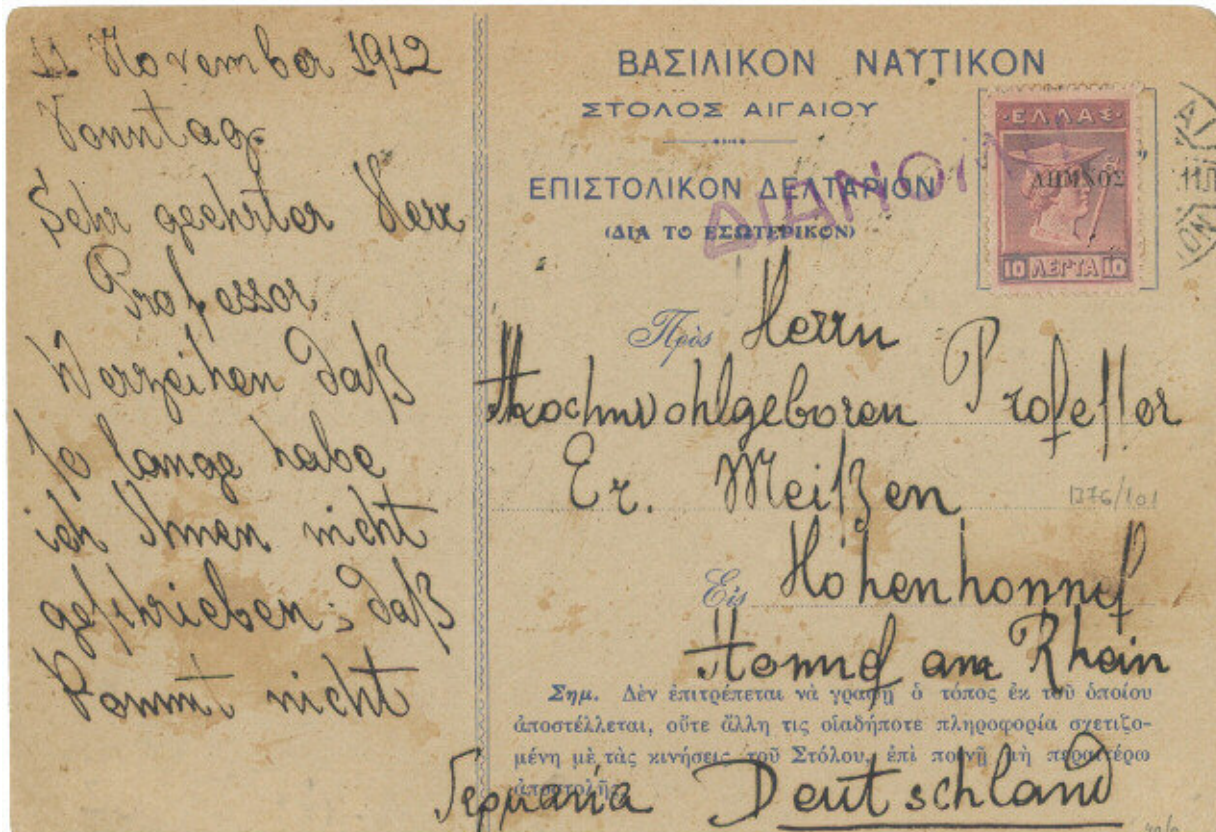 11 November 1912
Sonntag.
Sehr geehrter Herr
Professor
Verzeihen daß
so lange habe
ich Ihnen nicht
geschrieben; daß
kommt nicht
ΒΑΣΙΛΙΚΟΝ ΝΑΥΤΙΚΟΝ
ΣΤΟΛΟΣ ΑΙΓΑΙΟΥ
ΕΠΙΣΤΟΛΙΚΟΝ ΔΕΛΤΑΡΙΟΝ
(ΔΙΑ ΤΟ ΕΣΩΤΕΡΙΚΟΝ)
ΕΛΛΑΣ
ΛΗΜΝΟΣ
10 ΛΕΠΤΑ 10
Πρὸς Herrn
Hochwohlgeboren Professor
Er. Meißen
1376/101
Εἰς Hohenhonnef
Honnef am Rhein
Σημ. Δὲν ἐπιτρέπεται νὰ γραφῇ ὁ τόπος ἐκ τοῦ ὁποίου
ἀποστέλλεται, οὔτε ἄλλη τις οἱαδήποτε πληροφορία σχετιζο-
μένη μὲ τὰς κινήσεις τοῦ Στόλου, ἐπὶ ποινῇ μὴ περαιτέρω
ἀποστολῆς.
Γερμανία Deutschland